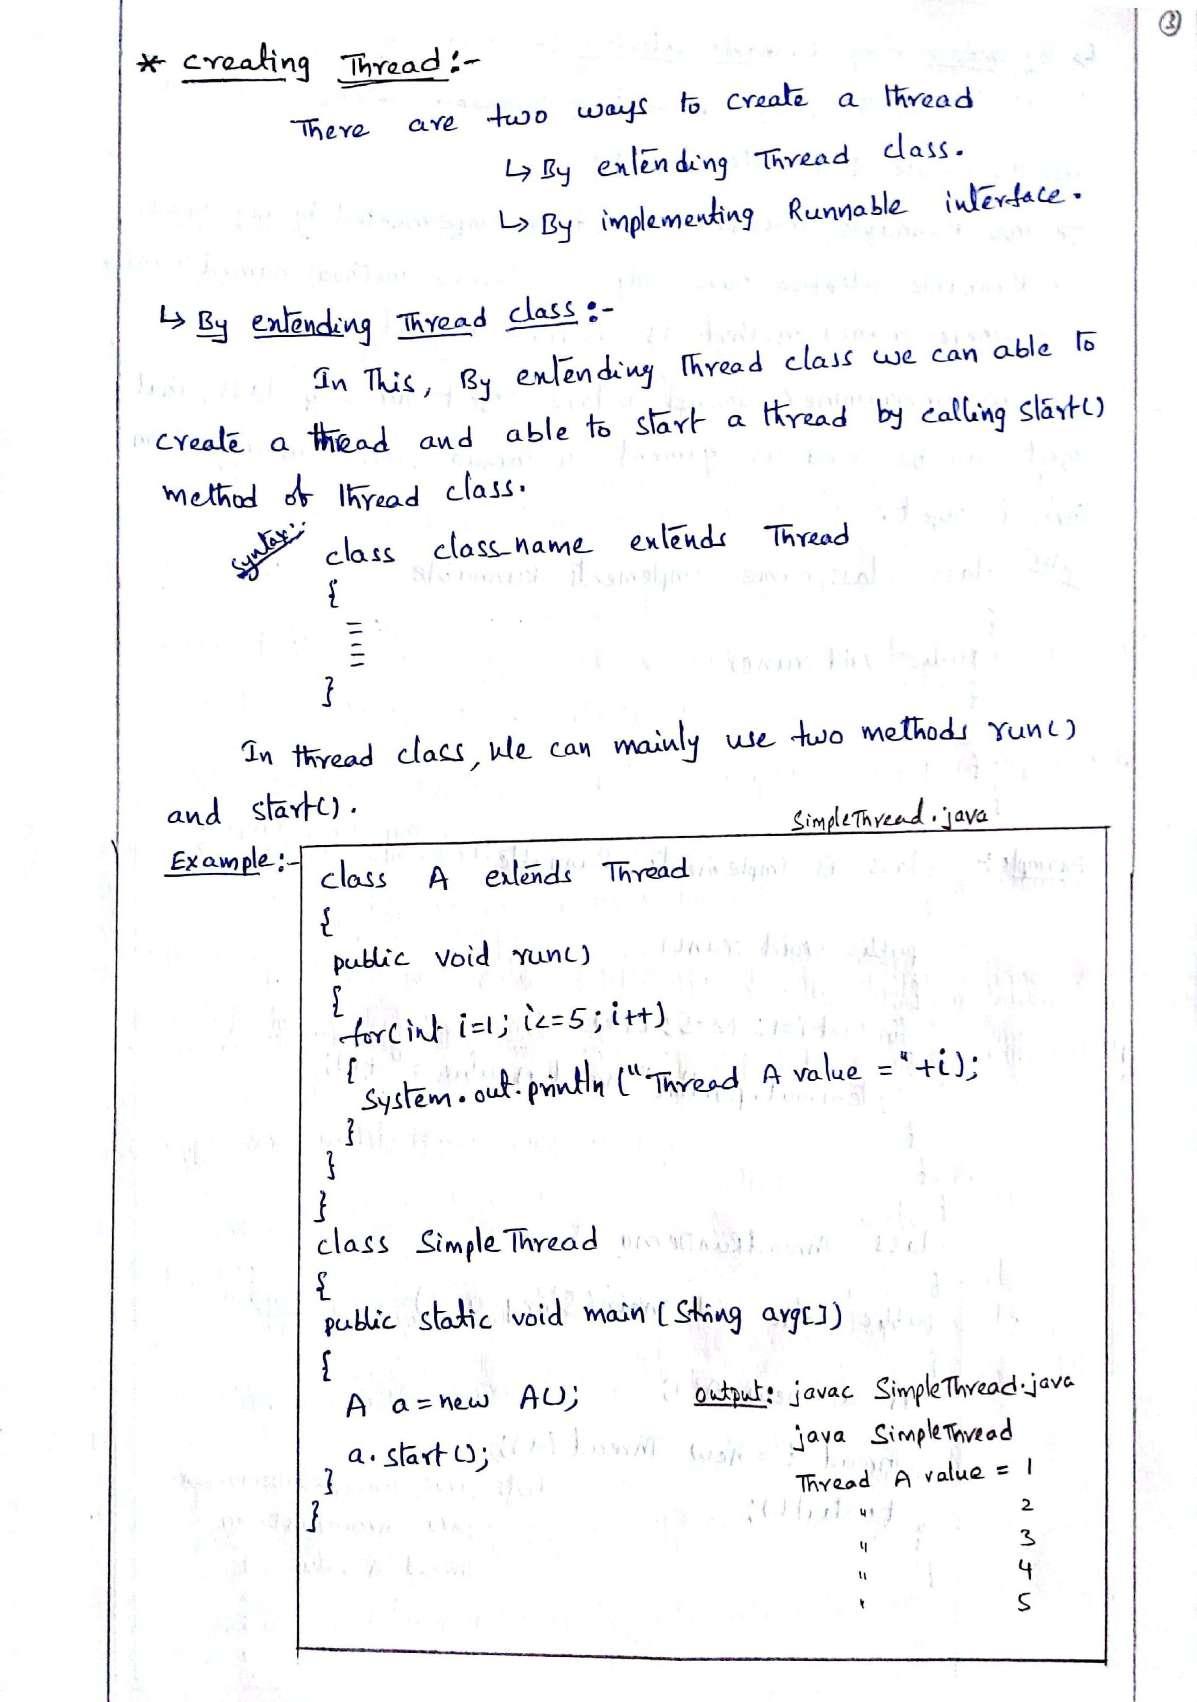 3
* Creating Thread :-
There are two ways to create a thread
↳ By extending Thread class.
↳ By implementing Runnable interface.
↳ By extending Thread class :-
In This, By extending Thread class we can able to
create a thread and able to start a thread by calling start()
method of thread class.
Syntax:
class class_name extends Thread
{
}
In thread class, we can mainly use two methods run()
and start().
SimpleThread.java
Example :-
class A extends Thread
{
public void run()
{
for(int i=1; i<=5; i++)
{
System.out.println ("Thread A value = "+i);
}
}
}
class SimpleThread
{
public static void main(String arg[])
{
A a = new A();
a.start();
}
}
output: javac SimpleThread.java
java SimpleThread
Thread A value = 1
" 2
" 3
" 4
" 5